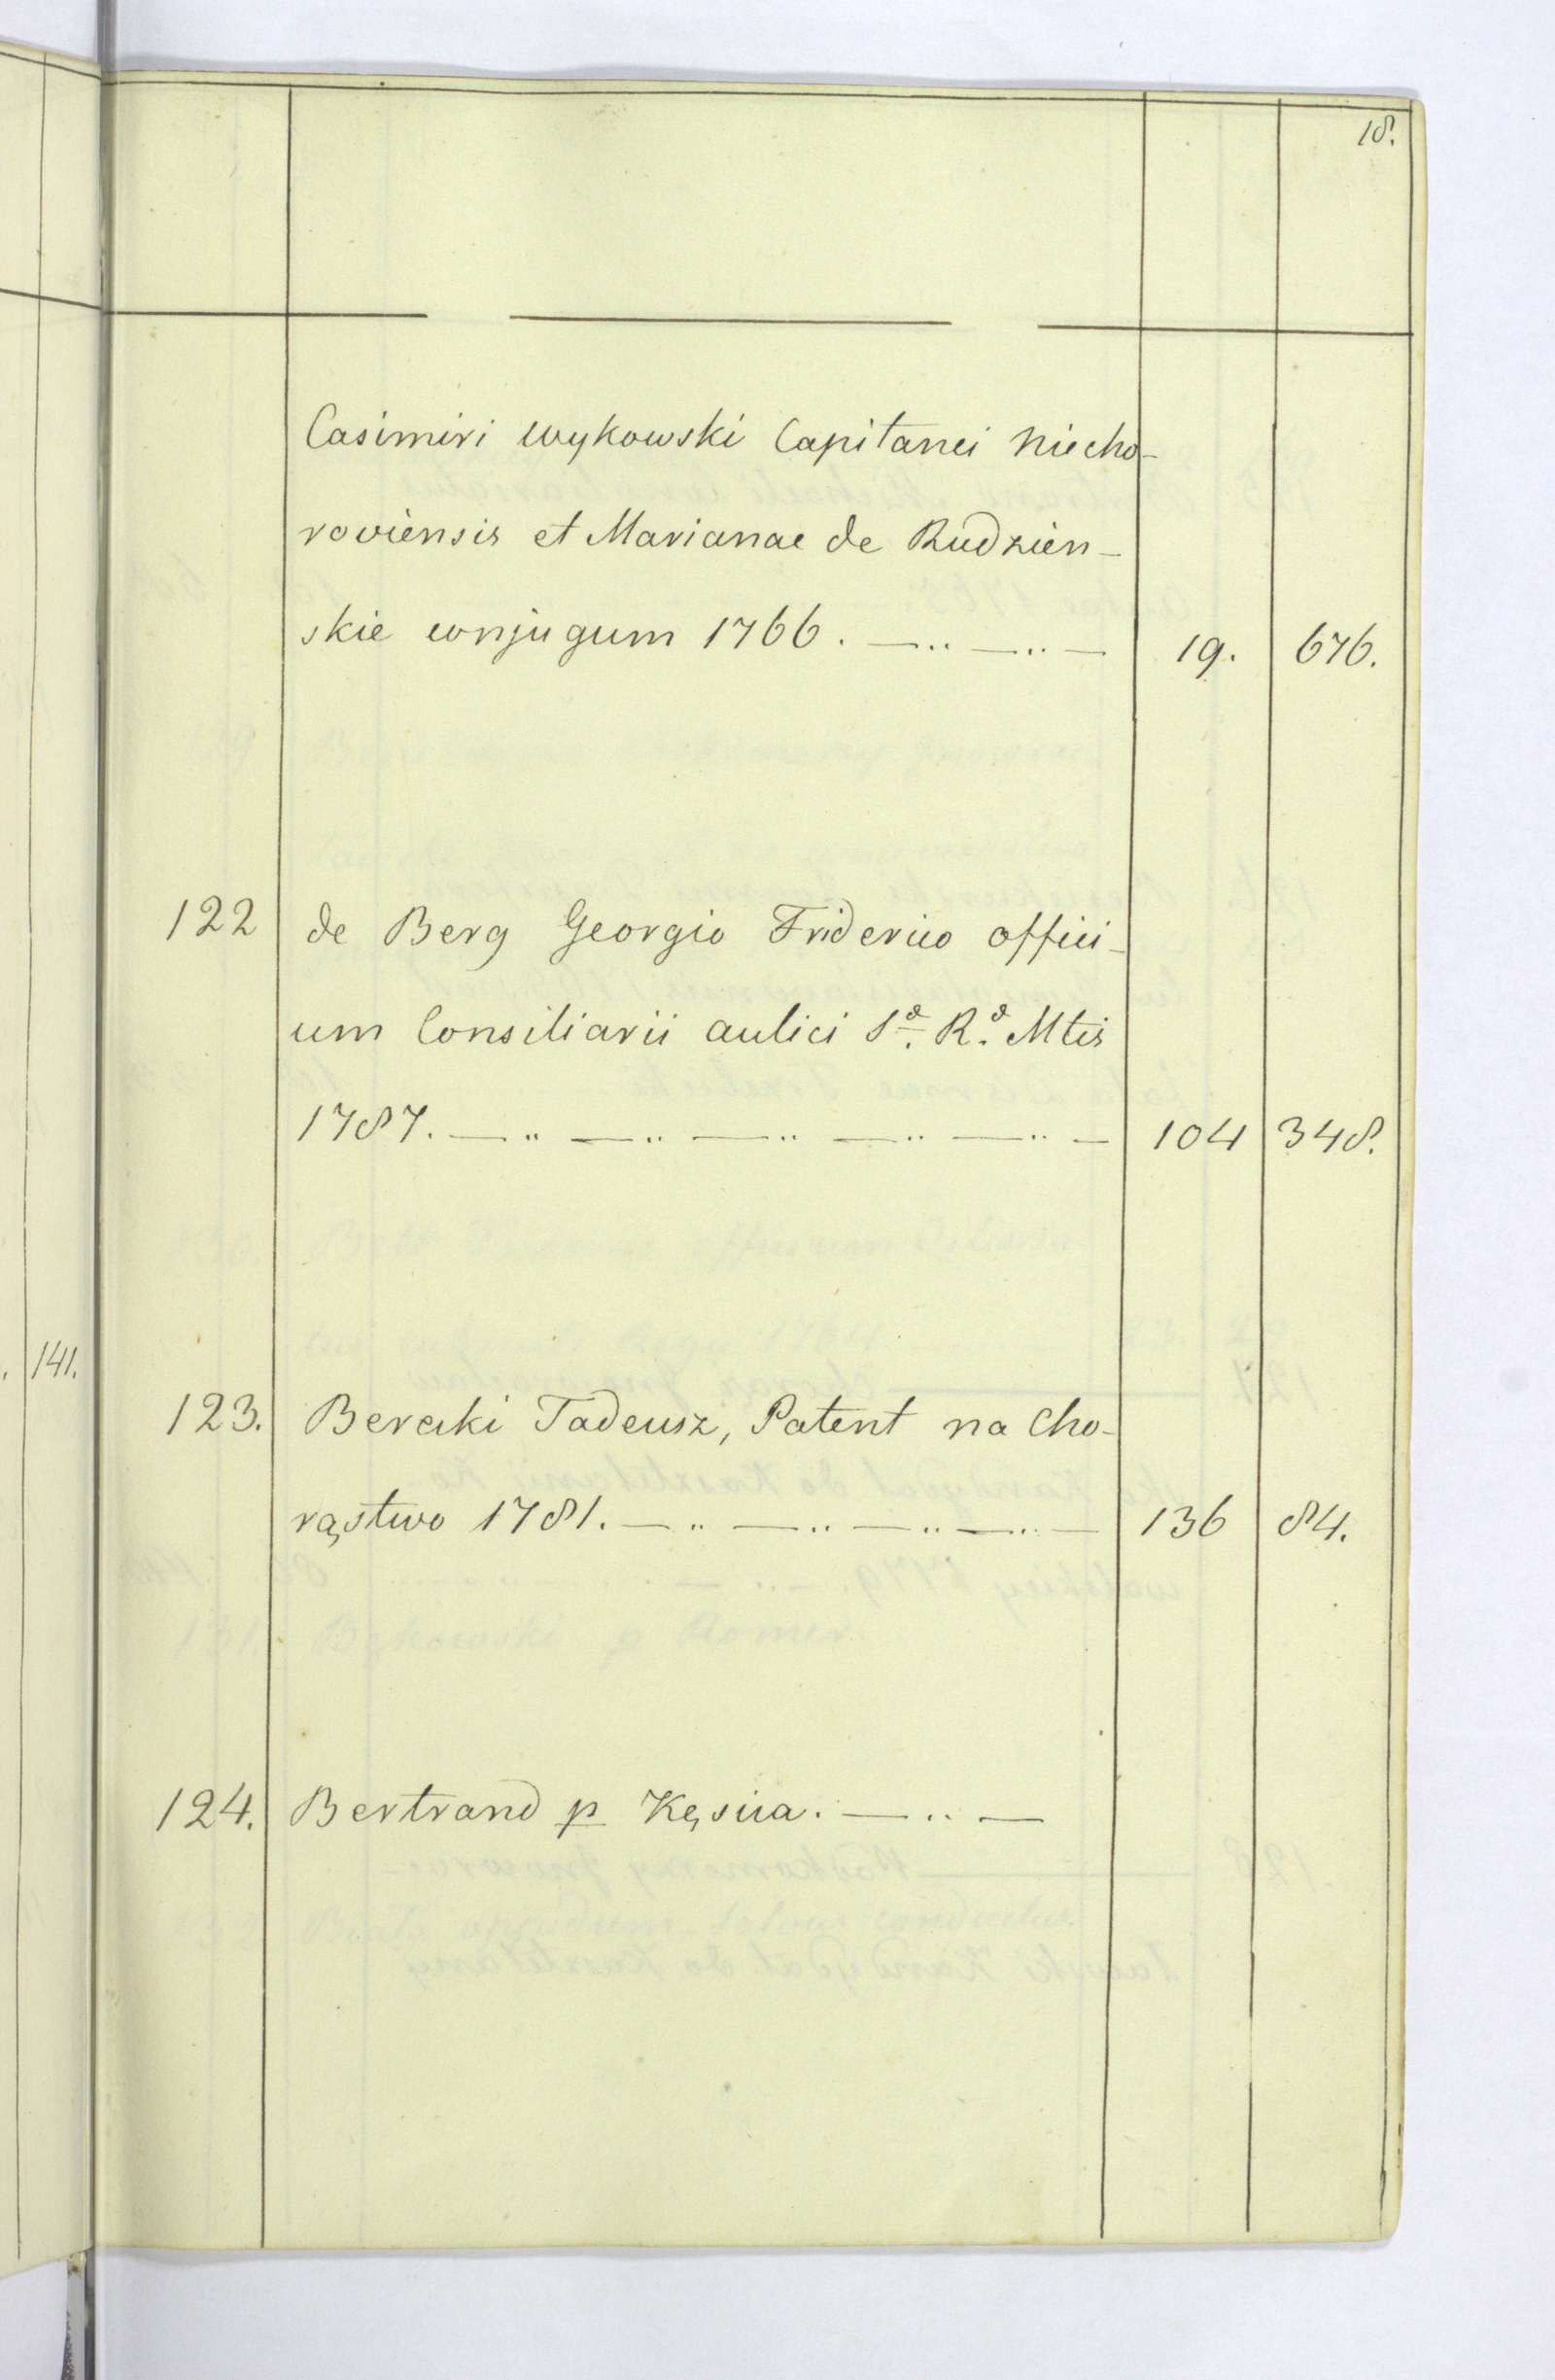 18.
Casimiri Wykowski Capitanei Niecho-
roviensis et Marianae de Rudzien-
skie conjugum 1766. 19. 676.
122 de Berg Georgio Friderico offici-
um Consiliarii aulici Sᵃ. Rᵃ. Mtis
1787. 104 348.
141.
123. Berecki Tadeusz, Patent na Cho-
rąstwo 1781. 136 84.
124. Bertrand p Kęsica.